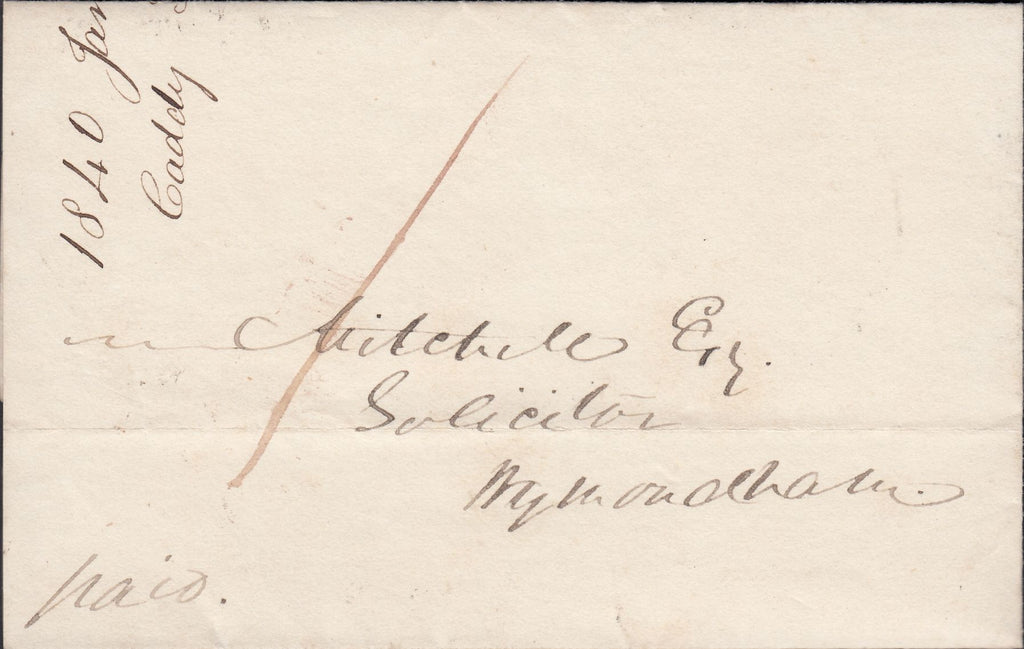 1840 Jan
Caddy
Mitchell Esq.
Solicitor
Wymondham.
paid.